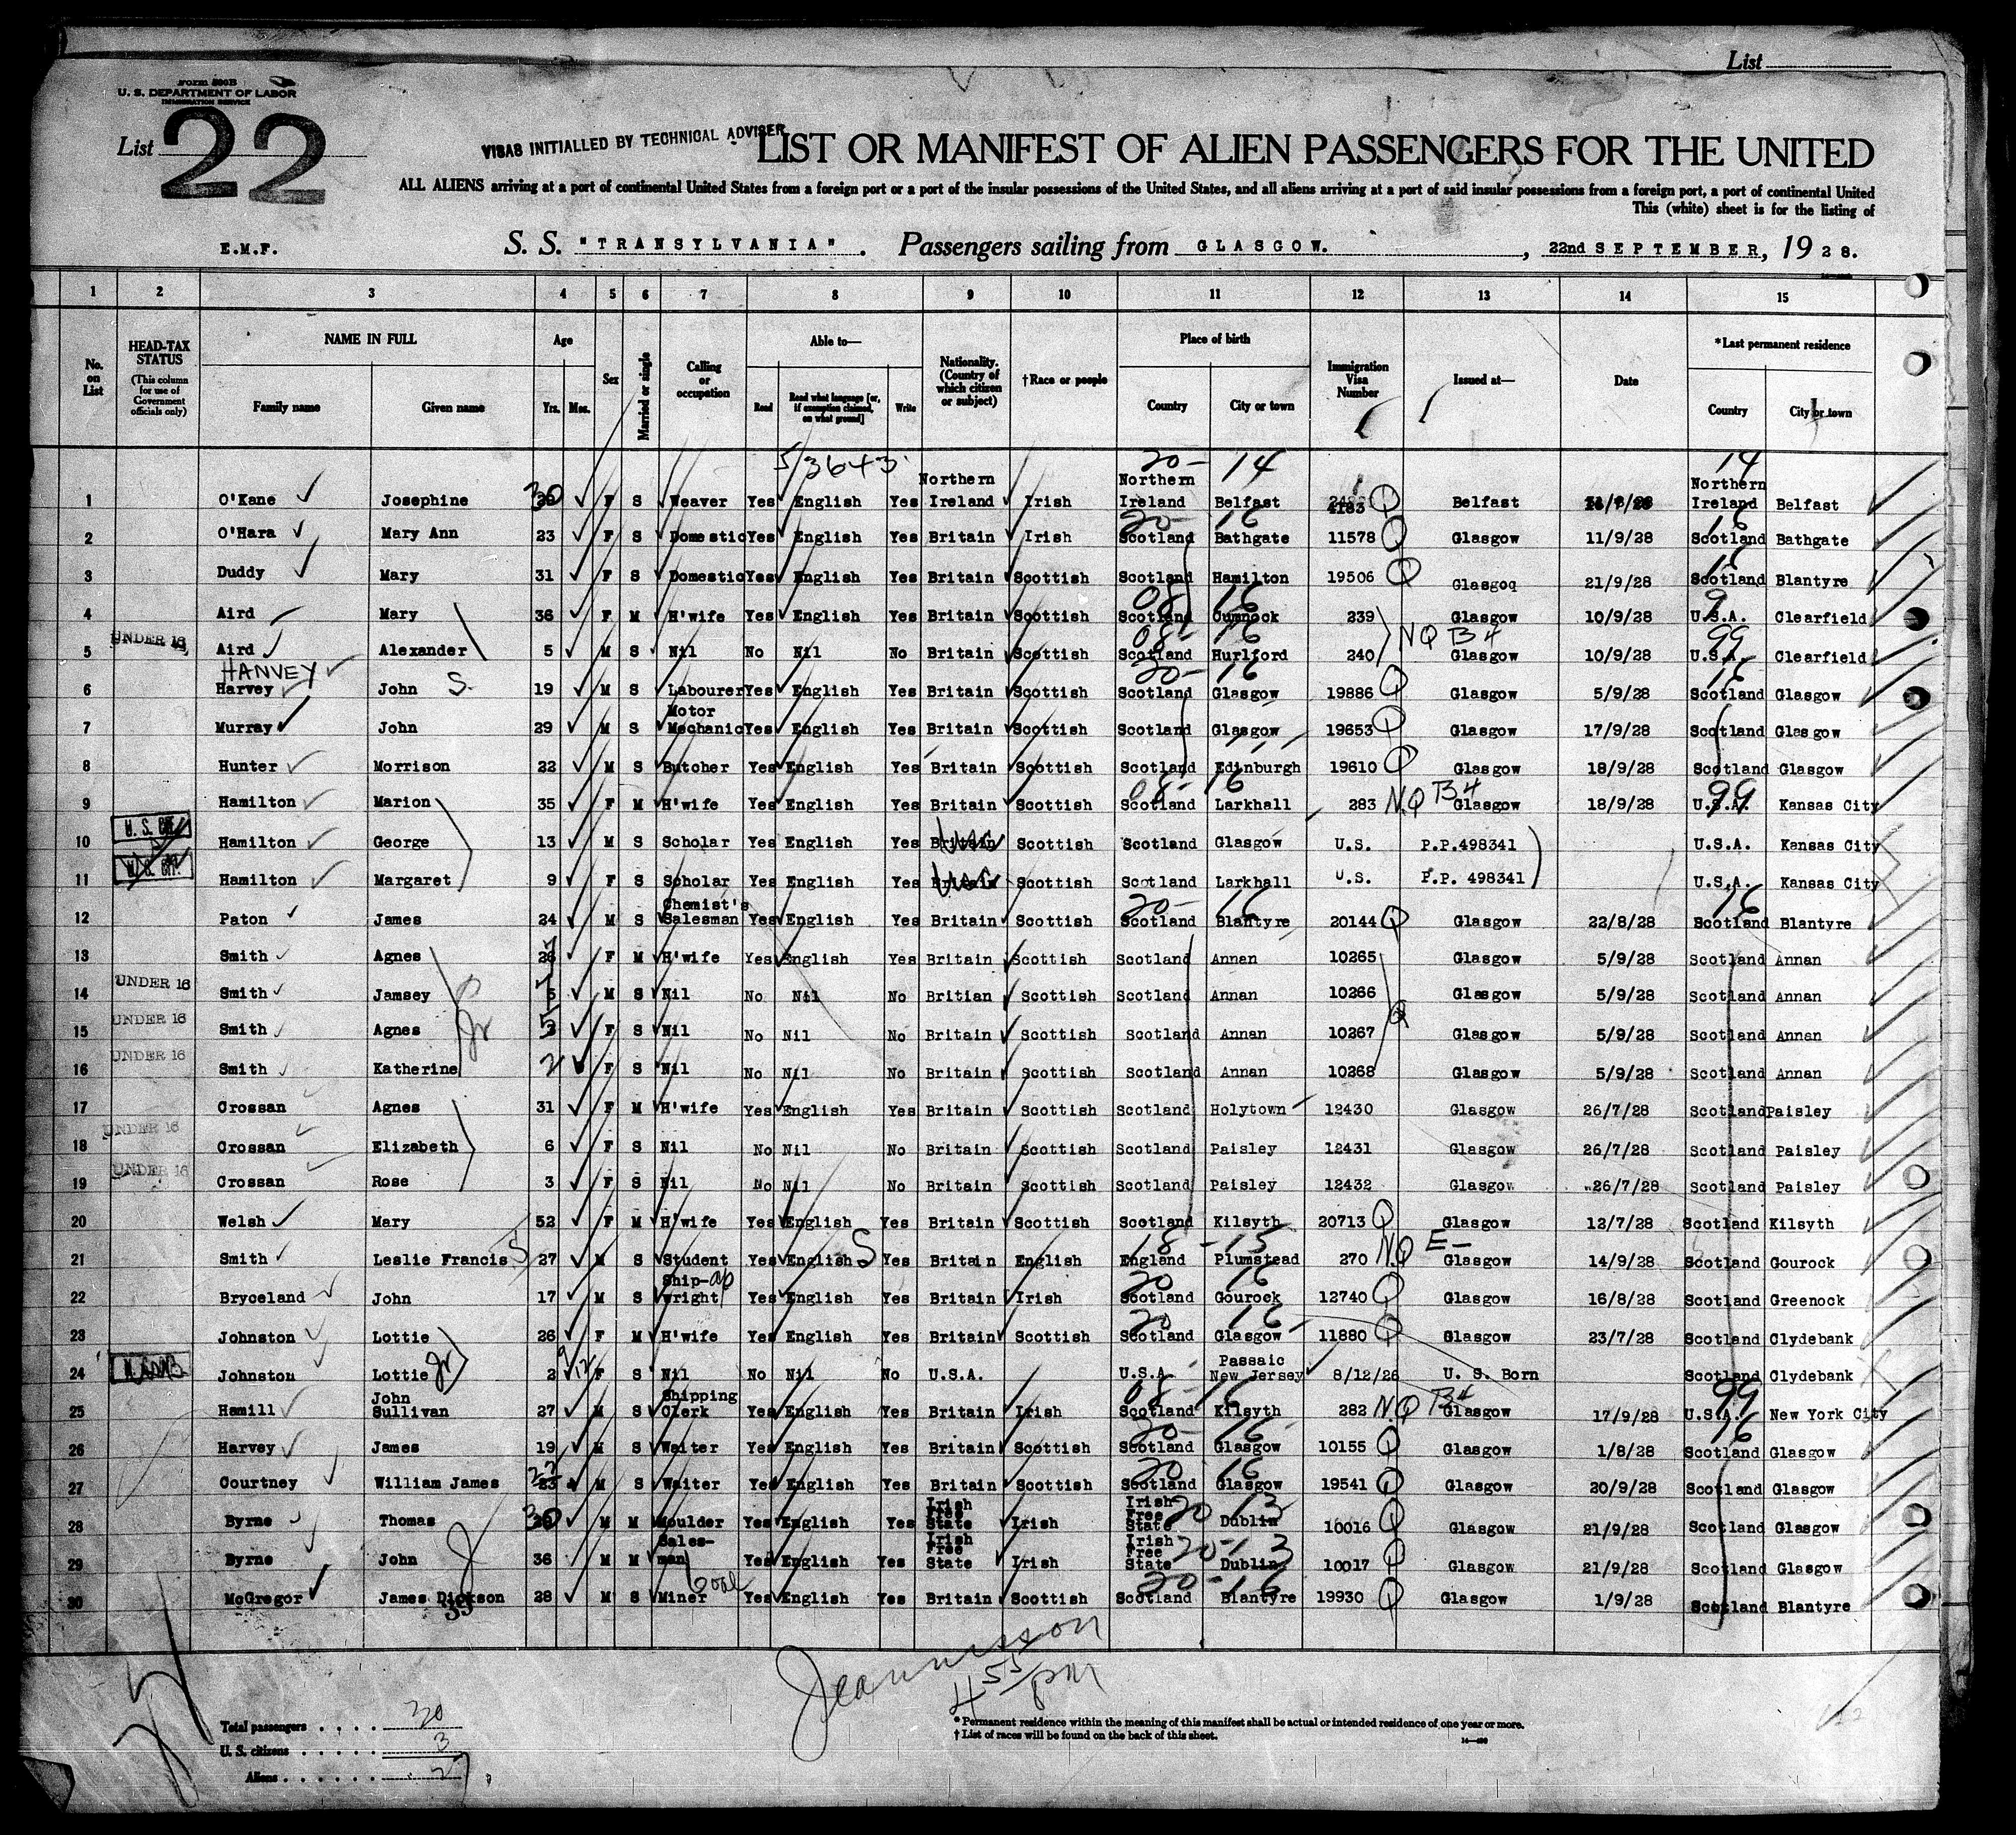 List
Form 500B
U. S. DEPARTMENT OF LABOR
IMMIGRATION SERVICE
List 22
VISAS INITIALLED BY TECHNICAL ADVISER
LIST OR MANIFEST OF ALIEN PASSENGERS FOR THE UNITED
ALL ALIENS arriving at a port of continental United States from a foreign port or a port of the insular possessions of the United States, and all aliens arriving at a port of said insular possessions from a foreign port, a port of continental United
This (white) sheet is for the listing of
E.M.F. S. S. "TRANSYLVANIA". Passengers sailing from GLASGOW. , 22nd SEPTEMBER, 19 28.
1 2 3 4 5 6 7 8 9 10 11 12 13 14 15
No. on List
HEAD-TAX STATUS (This column for use of Government officials only)
NAME IN FULL Family name Given name
Age Yrs. Mos.
Sex
Married or single
Calling or occupation
Able to— Read Read what language [or, if exemption claimed, on what ground] Write
Nationality. (Country of which citizen or subject)
†Race or people
Place of birth Country City or town
Immigration Visa Number
Issued at—
Date
*Last permanent residence Country City or town
5/3643 20- 14 14
1 O'Kane Josephine 30 F S Weaver Yes English Yes Northern Ireland Irish Northern Ireland Belfast Q Belfast Northern Ireland Belfast
20- 16 16
2 O'Hara Mary Ann 23 F S Domestic Yes English Yes Britain Irish Scotland Bathgate 11578 Q Glasgow 11/9/28 Scotland Bathgate
3 Duddy Mary 31 F S Domestic Yes English Yes Britain Scottish Scotland Hamilton 19506 Q Glasgoq 21/9/28 Scotland Blantyre
08- 16 9
4 Aird Mary 36 F M H'wife Yes English Yes Britain Scottish Scotland Cumnock 239 Glasgow 10/9/28 U.S.A. Clearfield
UNDER 16 08- 16 NQ B4 99
5 Aird Alexander 5 M S Nil No Nil No Britain Scottish Scotland Hurlford 240 Glasgow 10/9/28 U.S.A. Clearfield
HANVEY 20- 16 16
6 Harvey John S. 19 M S Labourer Yes English Yes Britain Scottish Scotland Glasgow 19886 Q Glasgow 5/9/28 Scotland Glasgow
7 Murray John 29 M S Motor Mechanic Yes English Yes Britain Scottish Scotland Glasgow 19653 Q Glasgow 17/9/28 Scotland Glasgow
8 Hunter Morrison 22 M S Butcher Yes English Yes Britain Scottish Scotland Edinburgh 19610 Q Glasgow 18/9/28 Scotland Glasgow
08- 16 99
9 Hamilton Marion 35 F M H'wife Yes English Yes Britain Scottish Scotland Larkhall 283 NQ B4 Glasgow 18/9/28 U.S.A. Kansas City
10 U. S. CIT. Hamilton George 13 M S Scholar Yes English Yes Britain Scottish Scotland Glasgow U.S. P.P.498341 U.S.A. Kansas City
11 U. S. CIT. Hamilton Margaret 9 F S Scholar Yes English Yes Britain Scottish Scotland Larkhall U.S. P.P. 498341 U.S.A. Kansas City
20- 16 16
12 Paton James 24 M S Chemist's Salesman Yes English Yes Britain Scottish Scotland Blantyre 20144 Q Glasgow 22/8/28 Scotland Blantyre
13 Smith Agnes F M H'wife Yes English Yes Britain Scottish Scotland Annan 10265 Glasgow 5/9/28 Scotland Annan
14 UNDER 16 Smith Jamsey M S Nil No Nil No Britian Scottish Scotland Annan 10266 Glasgow 5/9/28 Scotland Annan
15 UNDER 16 Smith Agnes Jr 5 F S Nil No Nil No Britain Scottish Scotland Annan 10267 Q Glasgow 5/9/28 Scotland Annan
16 UNDER 16 Smith Katherine 2 F S Nil No Nil No Britain Scottish Scotland Annan 10268 Glasgow 5/9/28 Scotland Annan
17 Crossan Agnes 31 F M H'wife Yes English Yes Britain Scottish Scotland Holytown 12430 Glasgow 26/7/28 Scotland Paisley
18 UNDER 16 Crossan Elizabeth 6 F S Nil No Nil No Britain Scottish Scotland Paisley 12431 Glasgow 26/7/28 Scotland Paisley
19 UNDER 16 Crossan Rose 3 F S Nil No Nil No Britain Scottish Scotland Paisley 12432 Glasgow 26/7/28 Scotland Paisley
20 Welsh Mary 52 F M H'wife Yes English Yes Britain Scottish Scotland Kilsyth 20713 Q Glasgow 12/7/28 Scotland Kilsyth
18 - 15
21 Smith Leslie Francis S 27 M S Student Yes English S Yes Britain English England Plumstead 270 N.Q E- Glasgow 14/9/28 Scotland Gourock
20 16
22 Bryceland John 17 M S Ship-wright ap Yes English Yes Britain Irish Scotland Gourock 12740 Q Glasgow 16/8/28 Scotland Greenock
20 16
23 Johnston Lottie 26 F M H'wife Yes English Yes Britain Scottish Scotland Glasgow 11880 Q Glasgow 23/7/28 Scotland Clydebank
24 Johnston Lottie Jr 2 9/12 F S Nil No Nil No U.S.A. U.S.A. Passaic New Jersey 8/12/26 U. S. Born Scotland Clydebank
08- 16 99
25 Hamill John Sullivan 27 M S Shipping Clerk Yes English Yes Britain Irish Scotland Kilsyth 282 N.Q B4 Glasgow 17/9/28 U.S.A. New York City
20- 16 16
26 Harvey James 19 M S Waiter Yes English Yes Britain Scottish Scotland Glasgow 10155 Q Glasgow 1/8/28 Scotland Glasgow
20 16
27 Courtney William James 22 23 M S Waiter Yes English Yes Britain Scottish Scotland Glasgow 19541 Q Glasgow 20/9/28 Scotland Glasgow
28 Byrne Thomas 30 M M Moulder Yes English Yes Irish Free State Irish Irish Free State 20 13 Dublin 10016 Q Glasgow 21/9/28 Scotland Glasgow
29 Byrne John J 36 M M Sales-man Yes English Yes Irish Free State Irish Irish Free State 20-13 Dublin 10017 Q Glasgow 21/9/28 Scotland Glasgow
20-16
30 McGregor James Dickson 28 M S Coal Miner Yes English Yes Britain Scottish Scotland Blantyre 19930 Q Glasgow 1/9/28 Scotland Blantyre
33
4 55 PM
Total passengers . . . . 30
U. S. citizens . . . . . 3
Aliens . . . . . . 27
* Permanent residence within the meaning of this manifest shall be actual or intended residence of one year or more.
† List of races will be found on the back of this sheet.